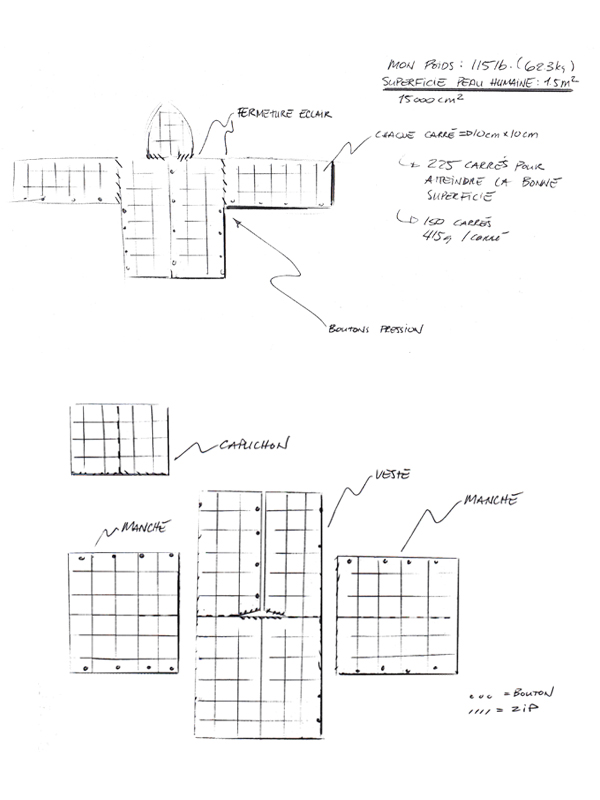 MON POIDS : 115 lb. (62.3 kg)
SUPERFICIE PEAU HUMAINE : 1.5 m²
15 000 cm²
FERMETURE ECLAIR
CHAQUE CARRÉ => 10 cm x 10 cm
225 CARRÉS POUR
ATTEINDRE LA BONNE
SUPERFICIE
150 CARRÉS
415 g / CARRÉ
BOUTONS PRESSION
CAPUCHON
VESTE
MANCHE
MANCHE
ooo = BOUTON
//// = ZIP